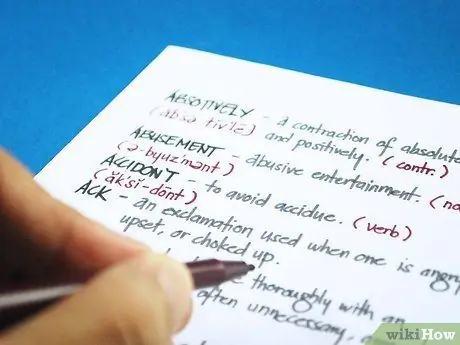 ABSOTIVELY - a contraction of absolute
(absə tiv'lē) and positively. (contr.)
ABUSEMENT - abusive entertainment. (no
(ə-byuz'mənt)
ACCIDON'T - to avoid accidue. (verb)
(ăksĭ-dōnt)
ACK - an exclamation used when one is angry
upset, or choked up.
thoroughly with an
often unnecessary,
wikiHow